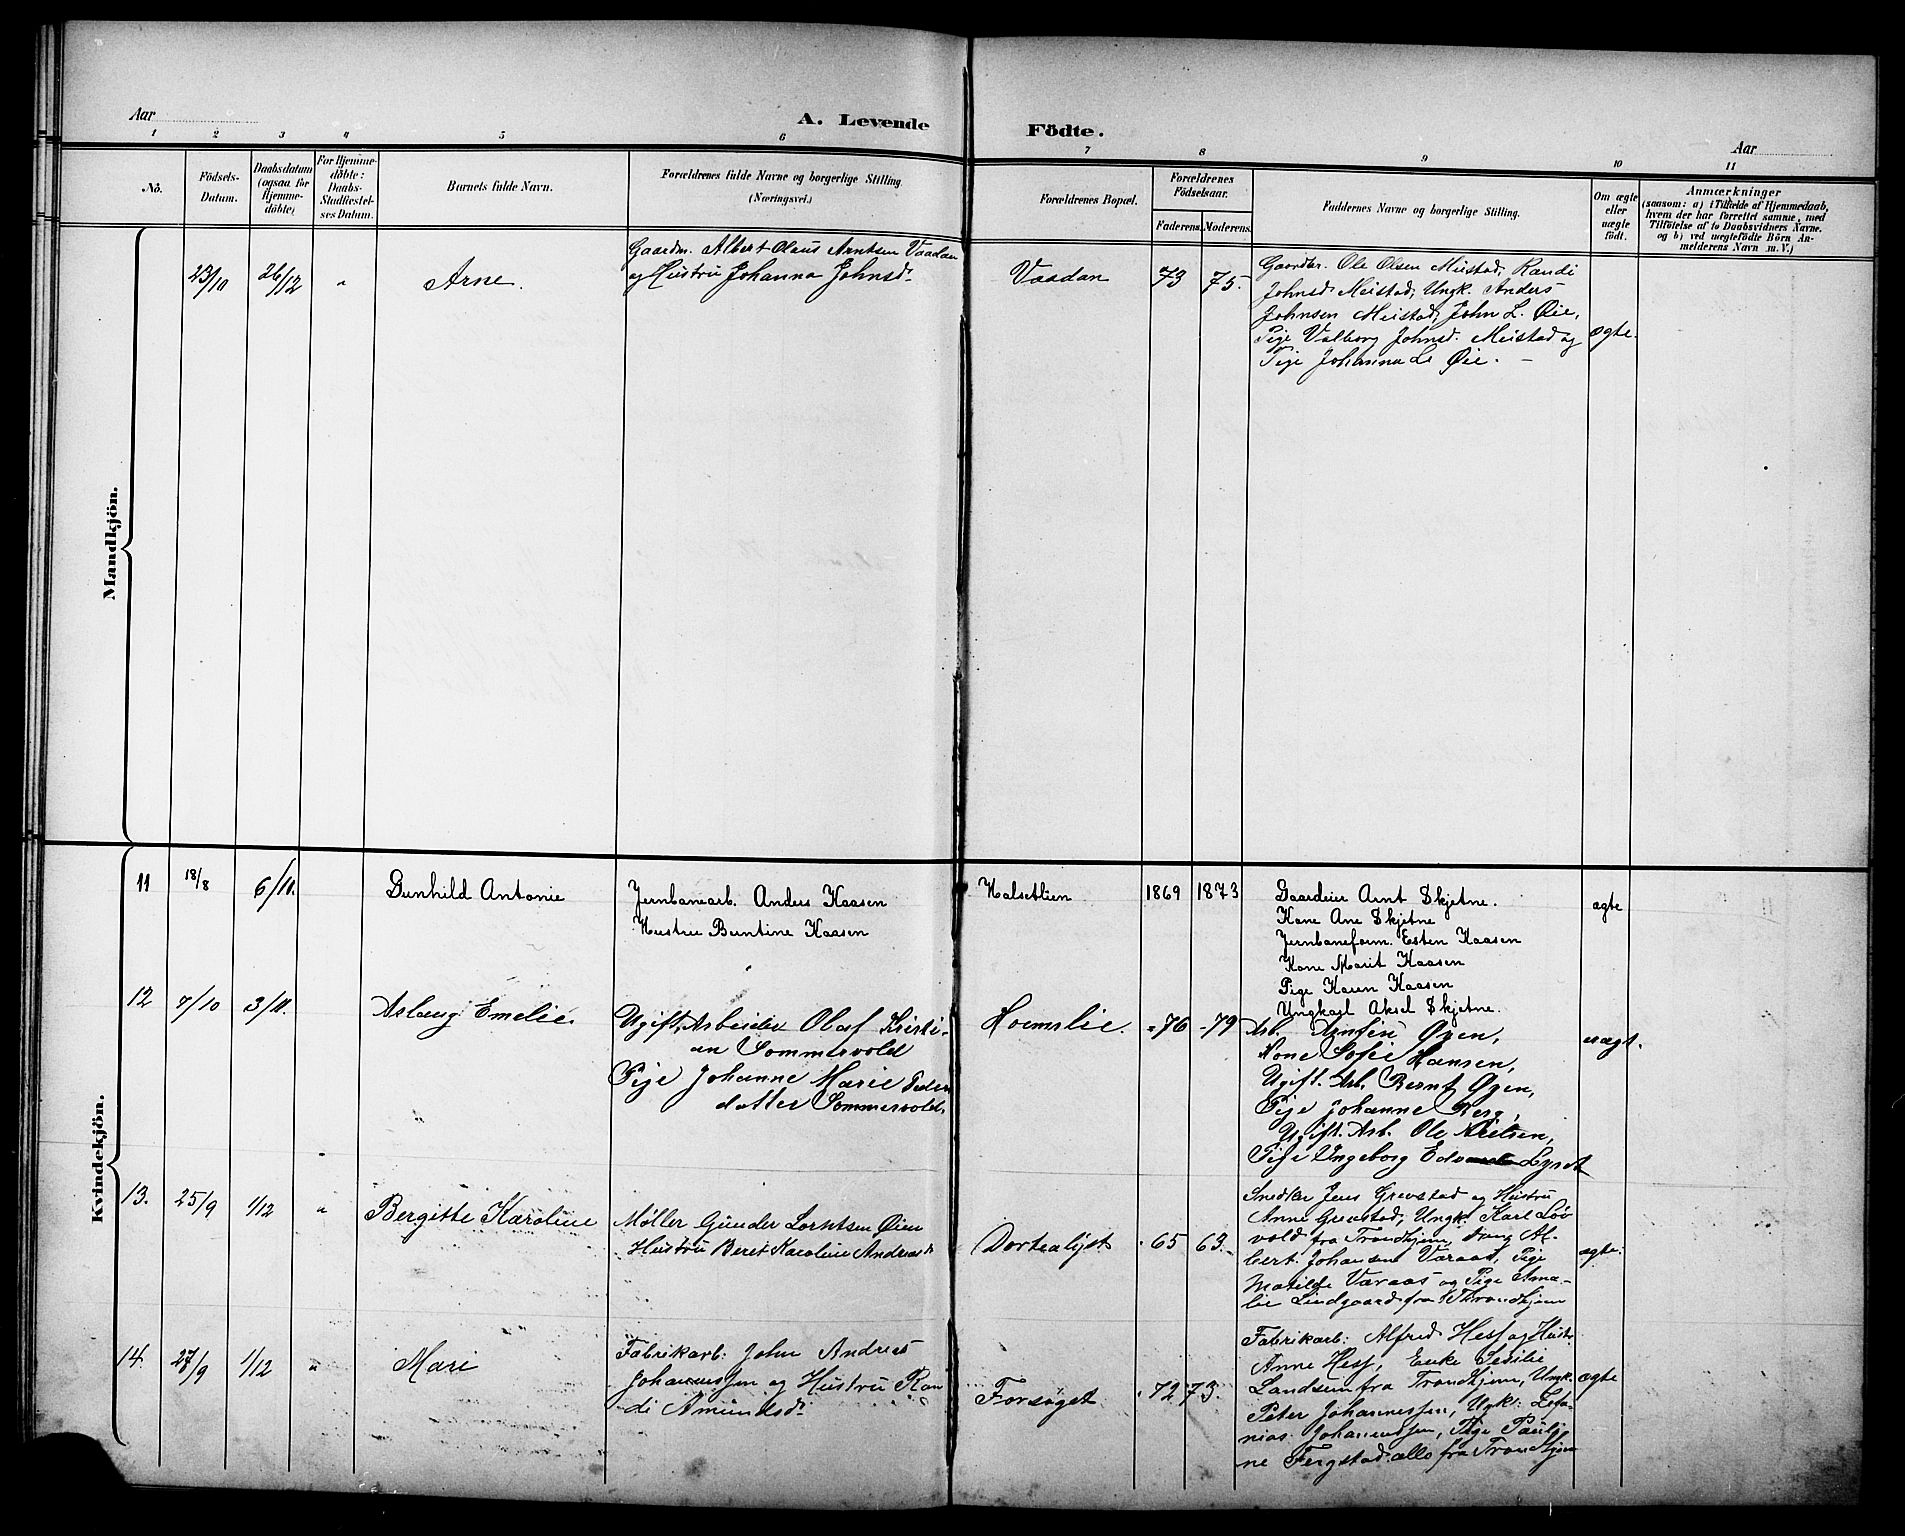 Aar
A. Levende
Födte.
Aar
1 2 3 4 5 6 7 8 9 10 11
No.
Födsels-
Datum.
Daabsdatum
(ogsaa for
Hjemme-
döbte)
For Hjemme-
döbte:
Daabs-
Stadfæstel-
ses Datum.
Barnets fulde Navn.
Forældrenes fulde Navne og borgerlige Stilling
(Næringsvei.)
Forældrenes Bopæl.
Forældrenes
Födselsaar.
Faderens. Moderens.
Faddernes Navne og borgerlige Stilling.
Om ægte
eller
uægte
födt.
Anmærkninger
(saasom: a) i Tilfælde af Hjemmedaab,
hvem der har forrettet samme, med
Tilföielse af to Daabsvidners Navne.
og b) ved uægtefödte Börn An-
melderens Navn m. V.)
Mandkjön.
23/10 26/12 " Arne.
Gaardm. Albert Olaus Arntsen Vaadan
og Hustru Johanna Johnsd.
Vaadan 73 75.
Gaardbr. Ole Olsen Meistad, Randi
Johnsd Meistad, Ungk. Anders
Johnsen Meistad, John L. Øie,
Pige Valborg Johnsd. Meistad og
Pige Johanna L. Øie. –
ægte.
Kvindekjön.
11 18/8 6/11. Gunhild Antonie
Jernbanearb. Anders Kaasen
Hustru Buntine Kaasen
Halsetlien 1869 1873
Gaardeier Arnt Skjetne.
Kone Ane Skjetne
Jernbaneform. Esten Kaasen
Kone Marit Kaasen
Pige Karen Kaasen
Ungkarl Aksel Skjetne.
ægte
12 7/10 3/11. Aslaug Emelie.
Ugift, Arbeider Olaf Kristi-
an Sommervold
Pige Johanne Marie Peders
datter Sommervold.
Hoemslie. -76 -79
Arb. Arnfin Øyen,
Kone Sofie Hansen,
Ugift. Arb. Bernt Øyen,
Pige Johanne Berg,
Ugift. Arb. Ole Nielsen,
Pige Ingeborg Lyset
uægt.
13. 25/9 1/12 " Bergitte Karoline
Møller Gunder Lorntsen Øien
Hustru Beret Karoline Andreasd.
Dortealyst 65 63.
Snedker Jens Grevstad og Hustru
Anne Grevstad, Ungk. Karl Løv
vold fra Trondhjem, Al-
bert Johansen Varaas, Pige
Matilde Varaas og Pige Ama-
lie Lindgaard fra Throndhjem
ægte.
14. 27/9 1/12 " Mari
Fabrikarb: John Andreas
Johannessen og Hustru Ran
di Amundsd.
Forsøget 72 73.
Fabrikarb: Alfred Hess og Hustr.
Anne Hess, Enke Sesilie
Landsem fra Trondhjem, Ungk.
Peter Johannessen, Ungk: Zefa-
nias Johannessen, Pige Pauli-
ne Fergstad alle fra Trondhjem
ægte